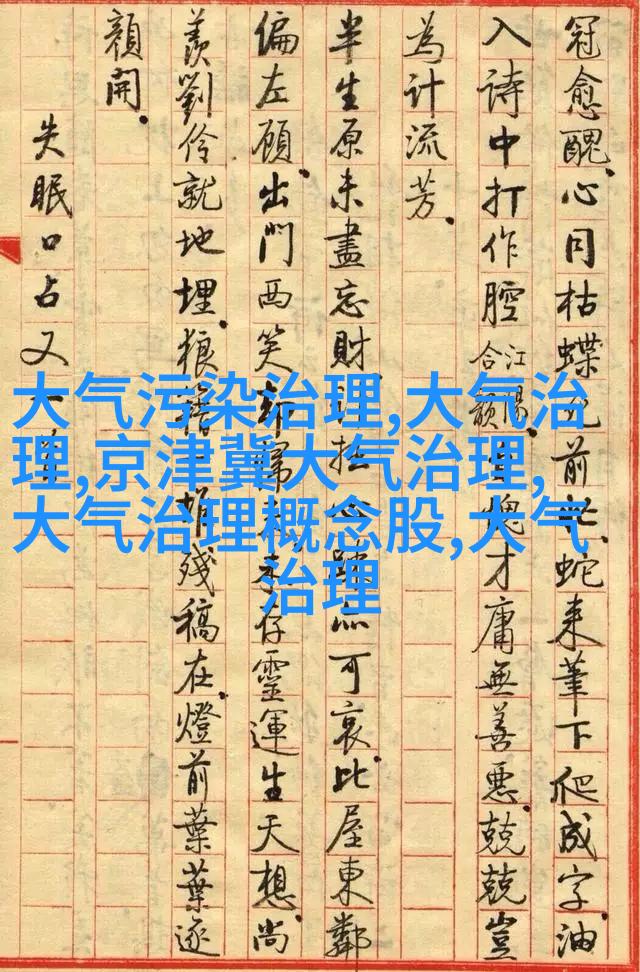 冠愈醜。心同枯蝶前忙。蛇来筆下爬成字。油
入詩中打作腔合江陽韻。愧才庸無善惡。兢兢豈
為計流芳。
半生原未盡忘財。拙心可哀。比屋東鄰
偏左顧。出門西笑歸未存靈運生天想。尚
羨劉伶就地埋。狼藉殘稿在。燈前葉葉逐
顏開。
失眠口占又一
大气污染治理,大气治
理,京津冀大气治理,
大气治理概念股,大气
治理